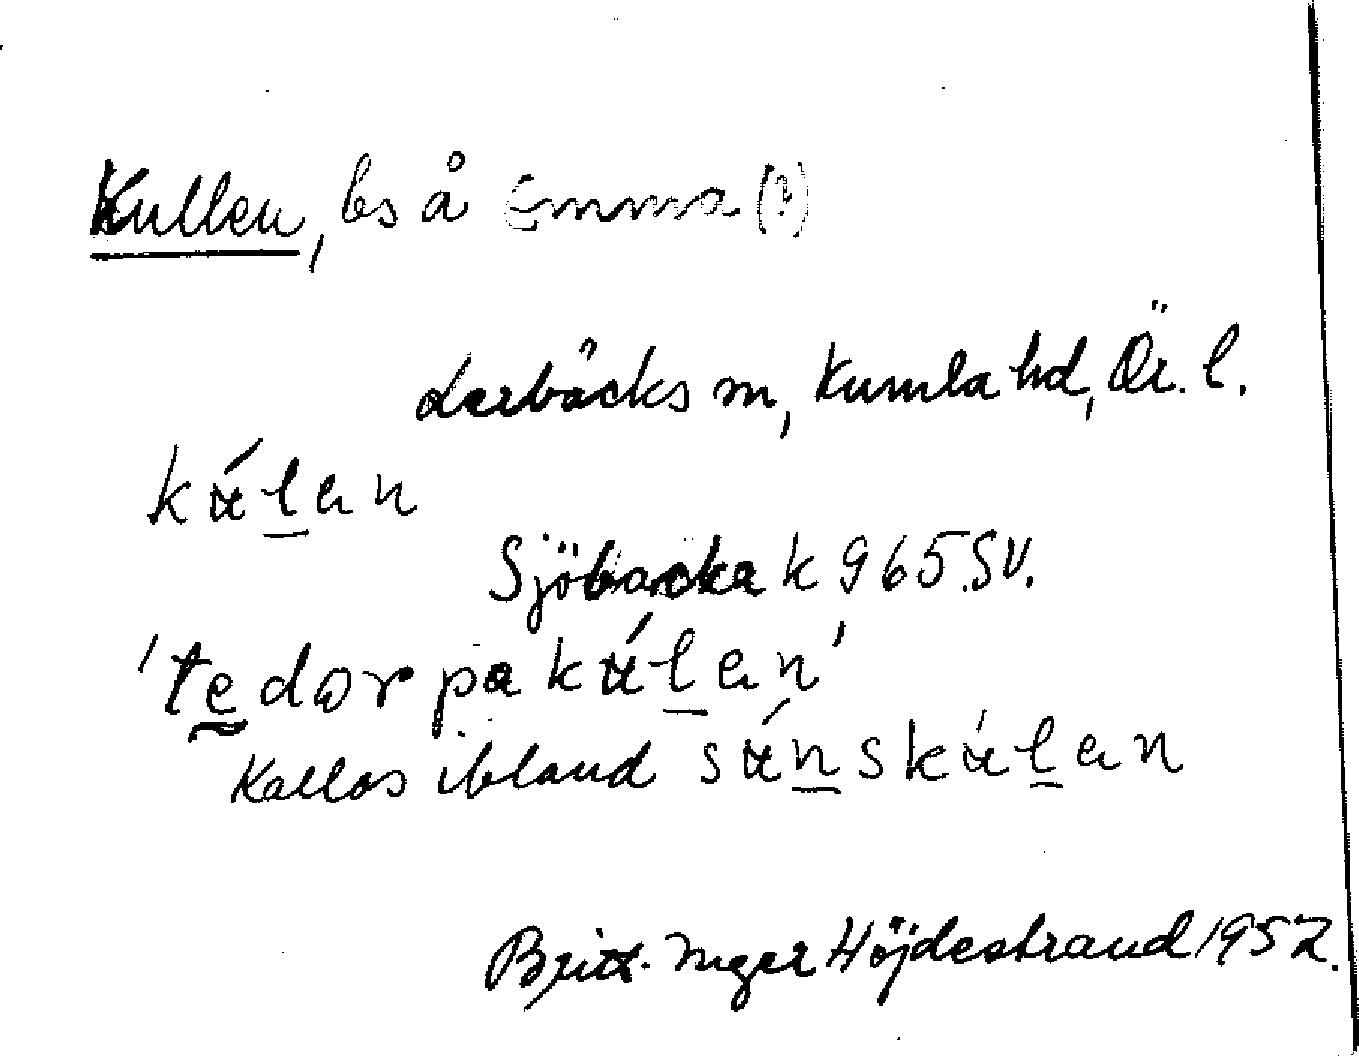 Kullen, bs å Emma (?)
Lerbäcks sn, Kumla hd, Ör. l.
kúlen
Sjöbacka k 965.SV.
'te dør pa kúlen'
Kallas ibland súnskúlen
Britt-Inger Höjdestrand 1952.